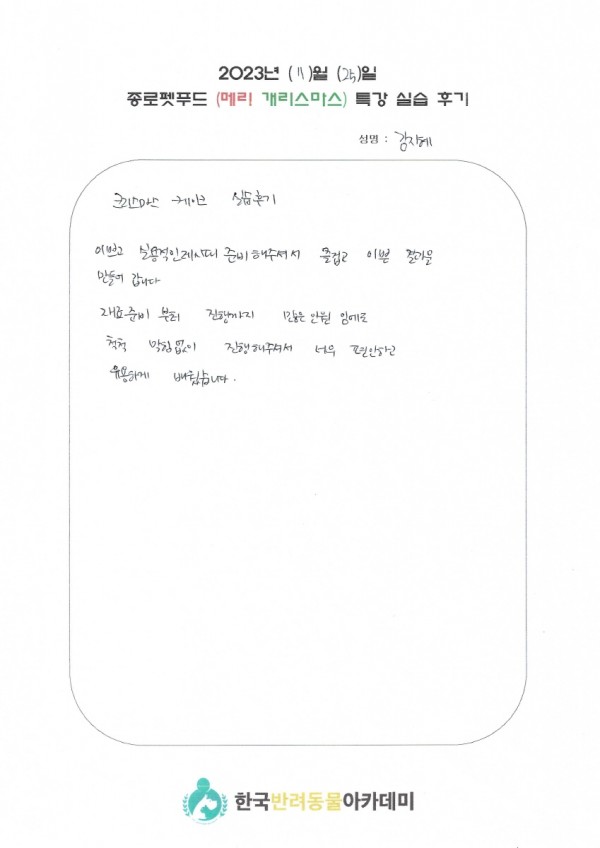 2023년 (11)월 (25)일
종로펫푸드 (메리 개리스마스) 특강 실습 후기
성명 : 김지혜
크리스마스 케이크 실습후기
이쁘고 실용적인레시피 준비해주셔서 즐겁고 이쁜 결과물
만들어 갑니다
재료준비 부터 진행까지 많은 인원 임에도
척척 막힘없이 진행해주셔서 너무 편안하고
유용하게 배웠습니다.
한국반려동물아카데미